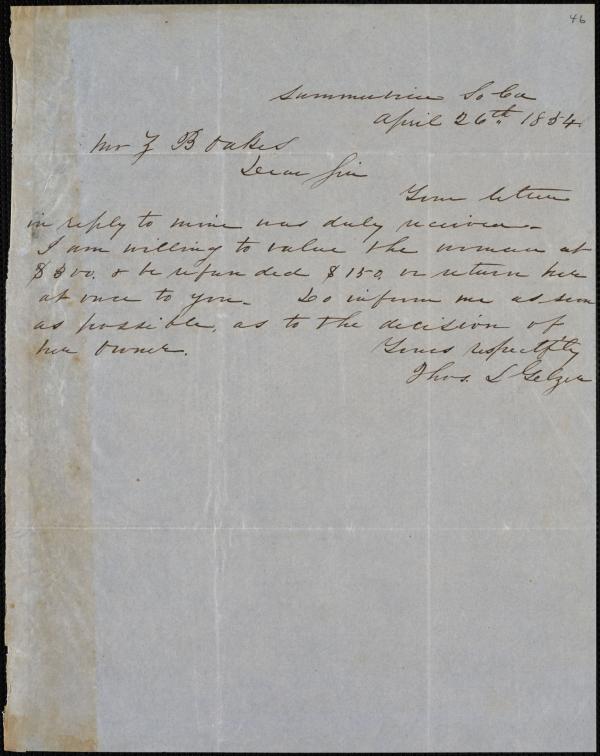 46
Summerville So Ca
April 26th 1854
Mr Z B Oakes
Dear Sir
Your letter
in reply to mine was duly received.
I am willing to value the woman at
$300. & be refunded $150, or return her
at once to you. Do inform me as soon
as possible, as to the decision of
her owner. Yours respectfly
Thos. L Gelzer